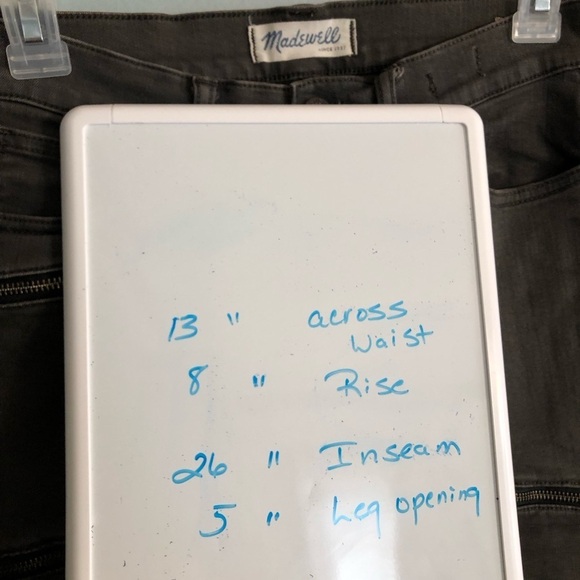 Madewell
SINCE 1937
13 " across
Waist
8 " Rise
26 " Inseam
5 " Leg opening